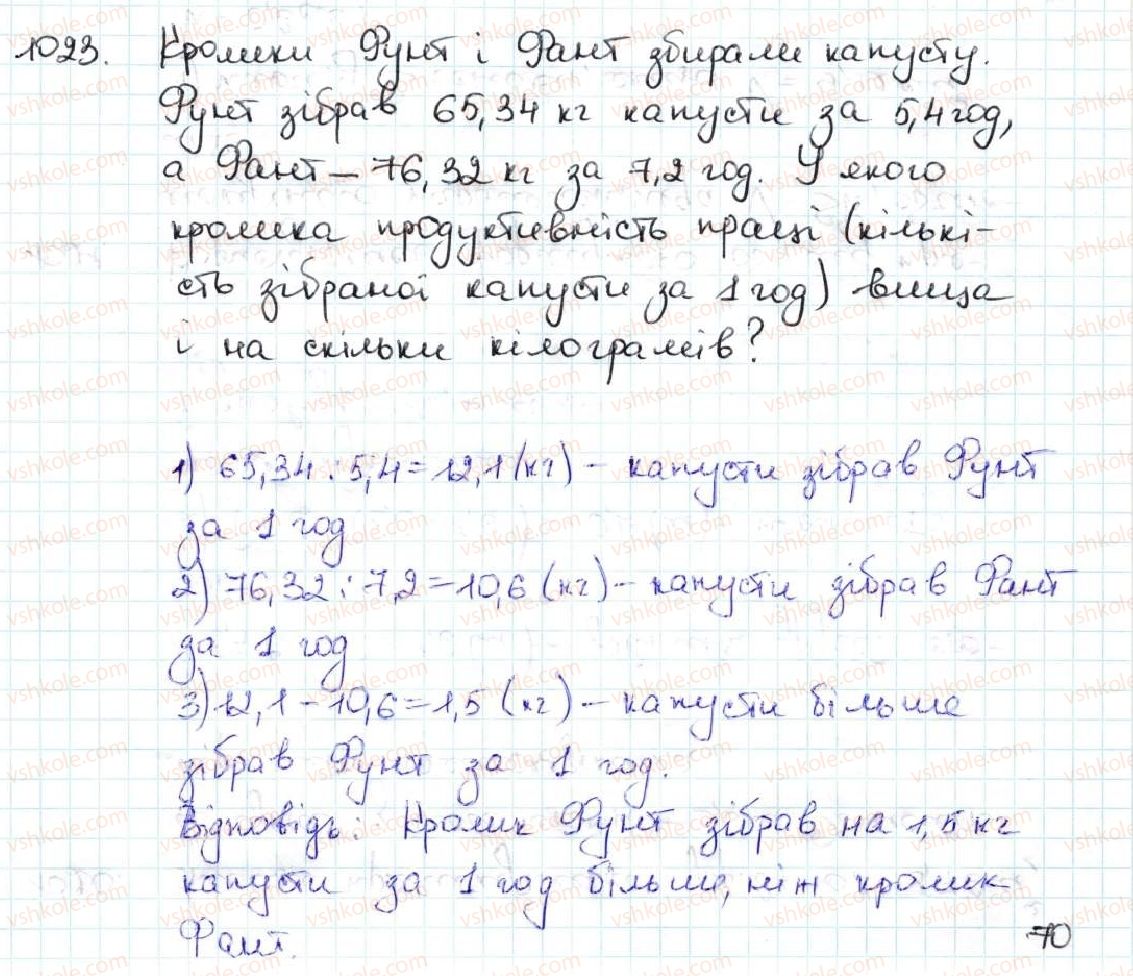 1023. Кролики Фунт і Фант збирали капусту.
Фунт зібрав 65,34 кг капусти за 5,4 год,
а Фант – 76,32 кг за 7,2 год. У якого
кролика продуктивність праці (кількі-
сть зібраної капусти за 1 год) вища
і на скільки кілограмів?
1) 65,34 : 5,4 = 12,1 (кг) – капусти зібрав Фунт
за 1 год
2) 76,32 : 7,2 = 10,6 (кг) – капусти зібрав Фант
за 1 год
3) 12,1 – 10,6 = 1,5 (кг) – капусти більше
зібрав Фунт за 1 год.
Відповідь: Кролик Фунт зібрав на 1,5 кг
капусти за 1 год більше, ніж кролик
Фант.
70
vshkole.com